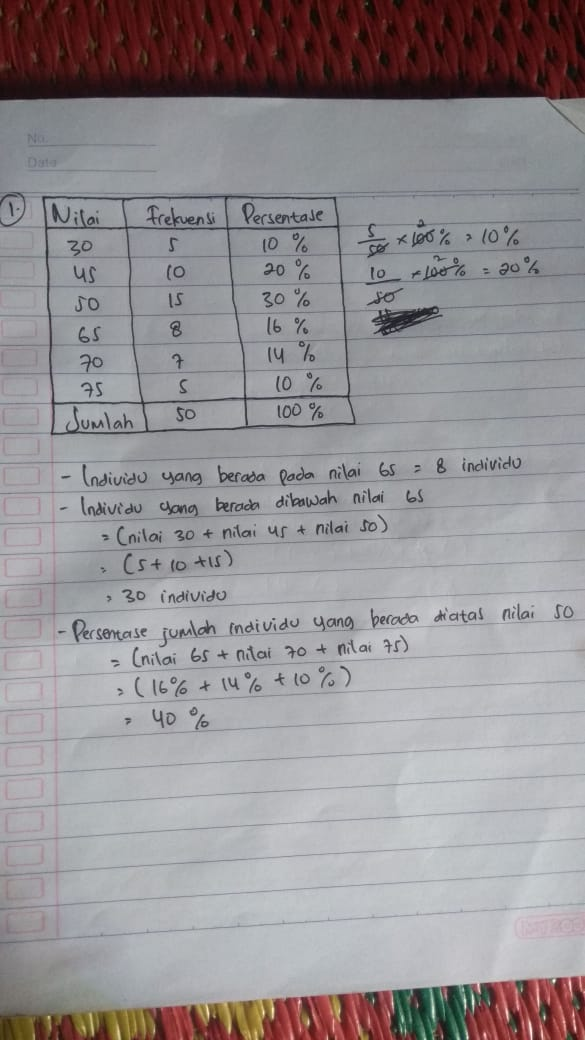 No.
Date
1.
Nilai Frekuensi Persentase
30 5 10 %
45 10 20 %
50 15 30 %
65 8 16 %
70 7 14 %
75 5 10 %
Jumlah 50 100 %
5/50 × 100% 2 = 10%
10/50 × 100% 2 = 20%
- Individu yang berada pada nilai 65 = 8 individu
- Individu yang berada dibawah nilai 65
= (nilai 30 + nilai 45 + nilai 50)
= (5 + 10 + 15)
= 30 individu
- Persentase jumlah individu yang berada diatas nilai 50
= (nilai 65 + nilai 70 + nilai 75)
= (16% + 14% + 10%)
= 40 %